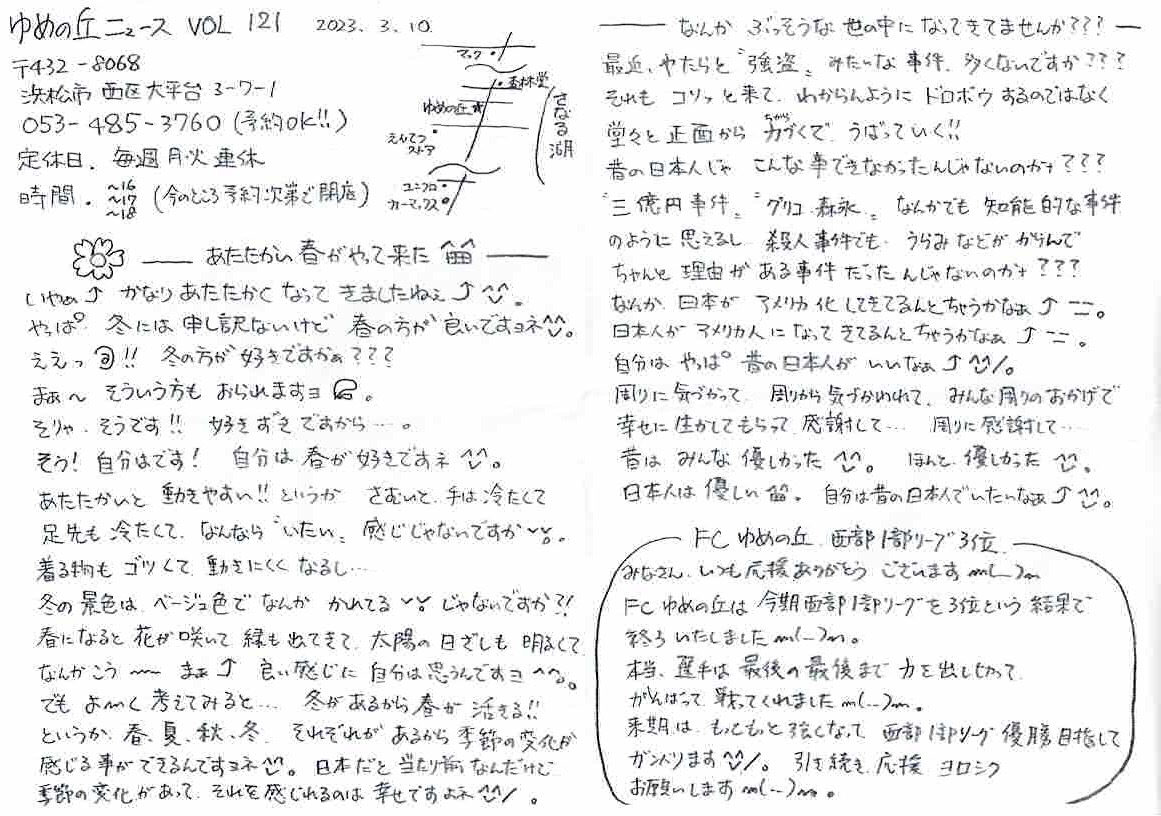 ゆめの丘ニュース VOL 121 2023. 3. 10.
〒432-8068
浜松市西区大平台3-7-1
053-485-3760(予約OK!!)
定休日. 毎週月火連休
時間. ~16 ~17 ~18 (今のところ予約次第で閉店)
マック
杏林堂
ゆめの丘★
さなる湖
えんてつストアー
ユニクロ
カーマックス
あたたかい春がやって来た
いやぁ↑ かなりあたたかくなってきましたねぇ↑^^。
やっぱ 冬には申し訳ないけど 春の方が良いですヨネ^^。
ええっ!! 冬の方が好きですかぁ???
まぁ~ そういう方もおられますヨ。
そりゃ.そうです!! 好きずきですから…。
そう! 自分はです! 自分は春が好きですネ^^。
あたたかいと動きやすい!!というか さむいと、手は冷たくて
足先も冷たくて、なんなら〝いたい〟感じじゃないですか。
着る物もゴツくて、動きにくくなるし…
冬の景色は、ベージュ色でなんか かれてる じゃないですか?!
春になると花が咲いて 緑も出てきて、太陽の日ざしも明るくて
なんかこう 〰 まぁ↑ 良い感じに自分は思うんですヨ^^。
でもよ〰く考えてみると… 冬があるから春が活きる!!
というか、春、夏、秋、冬、それぞれがあるから季節の変化が
感じる事ができるんですヨネ^^。日本だと当たり前なんだけど
季節の変化があって、それを感じれるのは幸せですよネ^^/。
なんか ぶっそうな世の中になってきてませんか???
最近、やたらと〝強盗〟みたいな事件、多くないですか???
それもコソッと来て、わからんようにドロボウするのではなく
堂々と正面から力(ちから)づくで、うばっていく!!
昔の日本人じゃ こんな事できなかったんじゃないのかナ???
〝三億円事件〟〝グリコ森永〟なんかでも知能的な事件
のように思えるし 殺人事件でも、うらみなどがからんで
ちゃんと理由がある事件だったんじゃないのかナ???
なんか、日本がアメリカ化してきてるんとちゃうかなぁ↑ーー。
日本人がアメリカ人になってきてるんとちゃうかなぁ↑ーー。
自分はやっぱ昔の日本人がいいなぁ↑^^/。
周りに気づかって、周りから気づかわれて、みんな周りのおかげで
幸せに生かしてもらって、感謝して… 周りに感謝して…
昔はみんな優しかった^^。 ほんと、優しかった^^。
日本人は優しい。自分は昔の日本人でいたいなぁ↑^^。
FCゆめの丘.西部1部リーグ3位
みなさん、いつも応援ありがとうございますm(__)m
FCゆめの丘は今期西部1部リーグを3位という結果で
終了いたしましたm(__)m。
本当、選手は最後の最後まで力を出し切って
がんばって戦ってくれましたm(__)m。
来期は、もっともっと強くなって、西部1部リーグ優勝目指して
ガンバリます^^/。引き続き、応援 ヨロシク
お願いしますm(__)m。